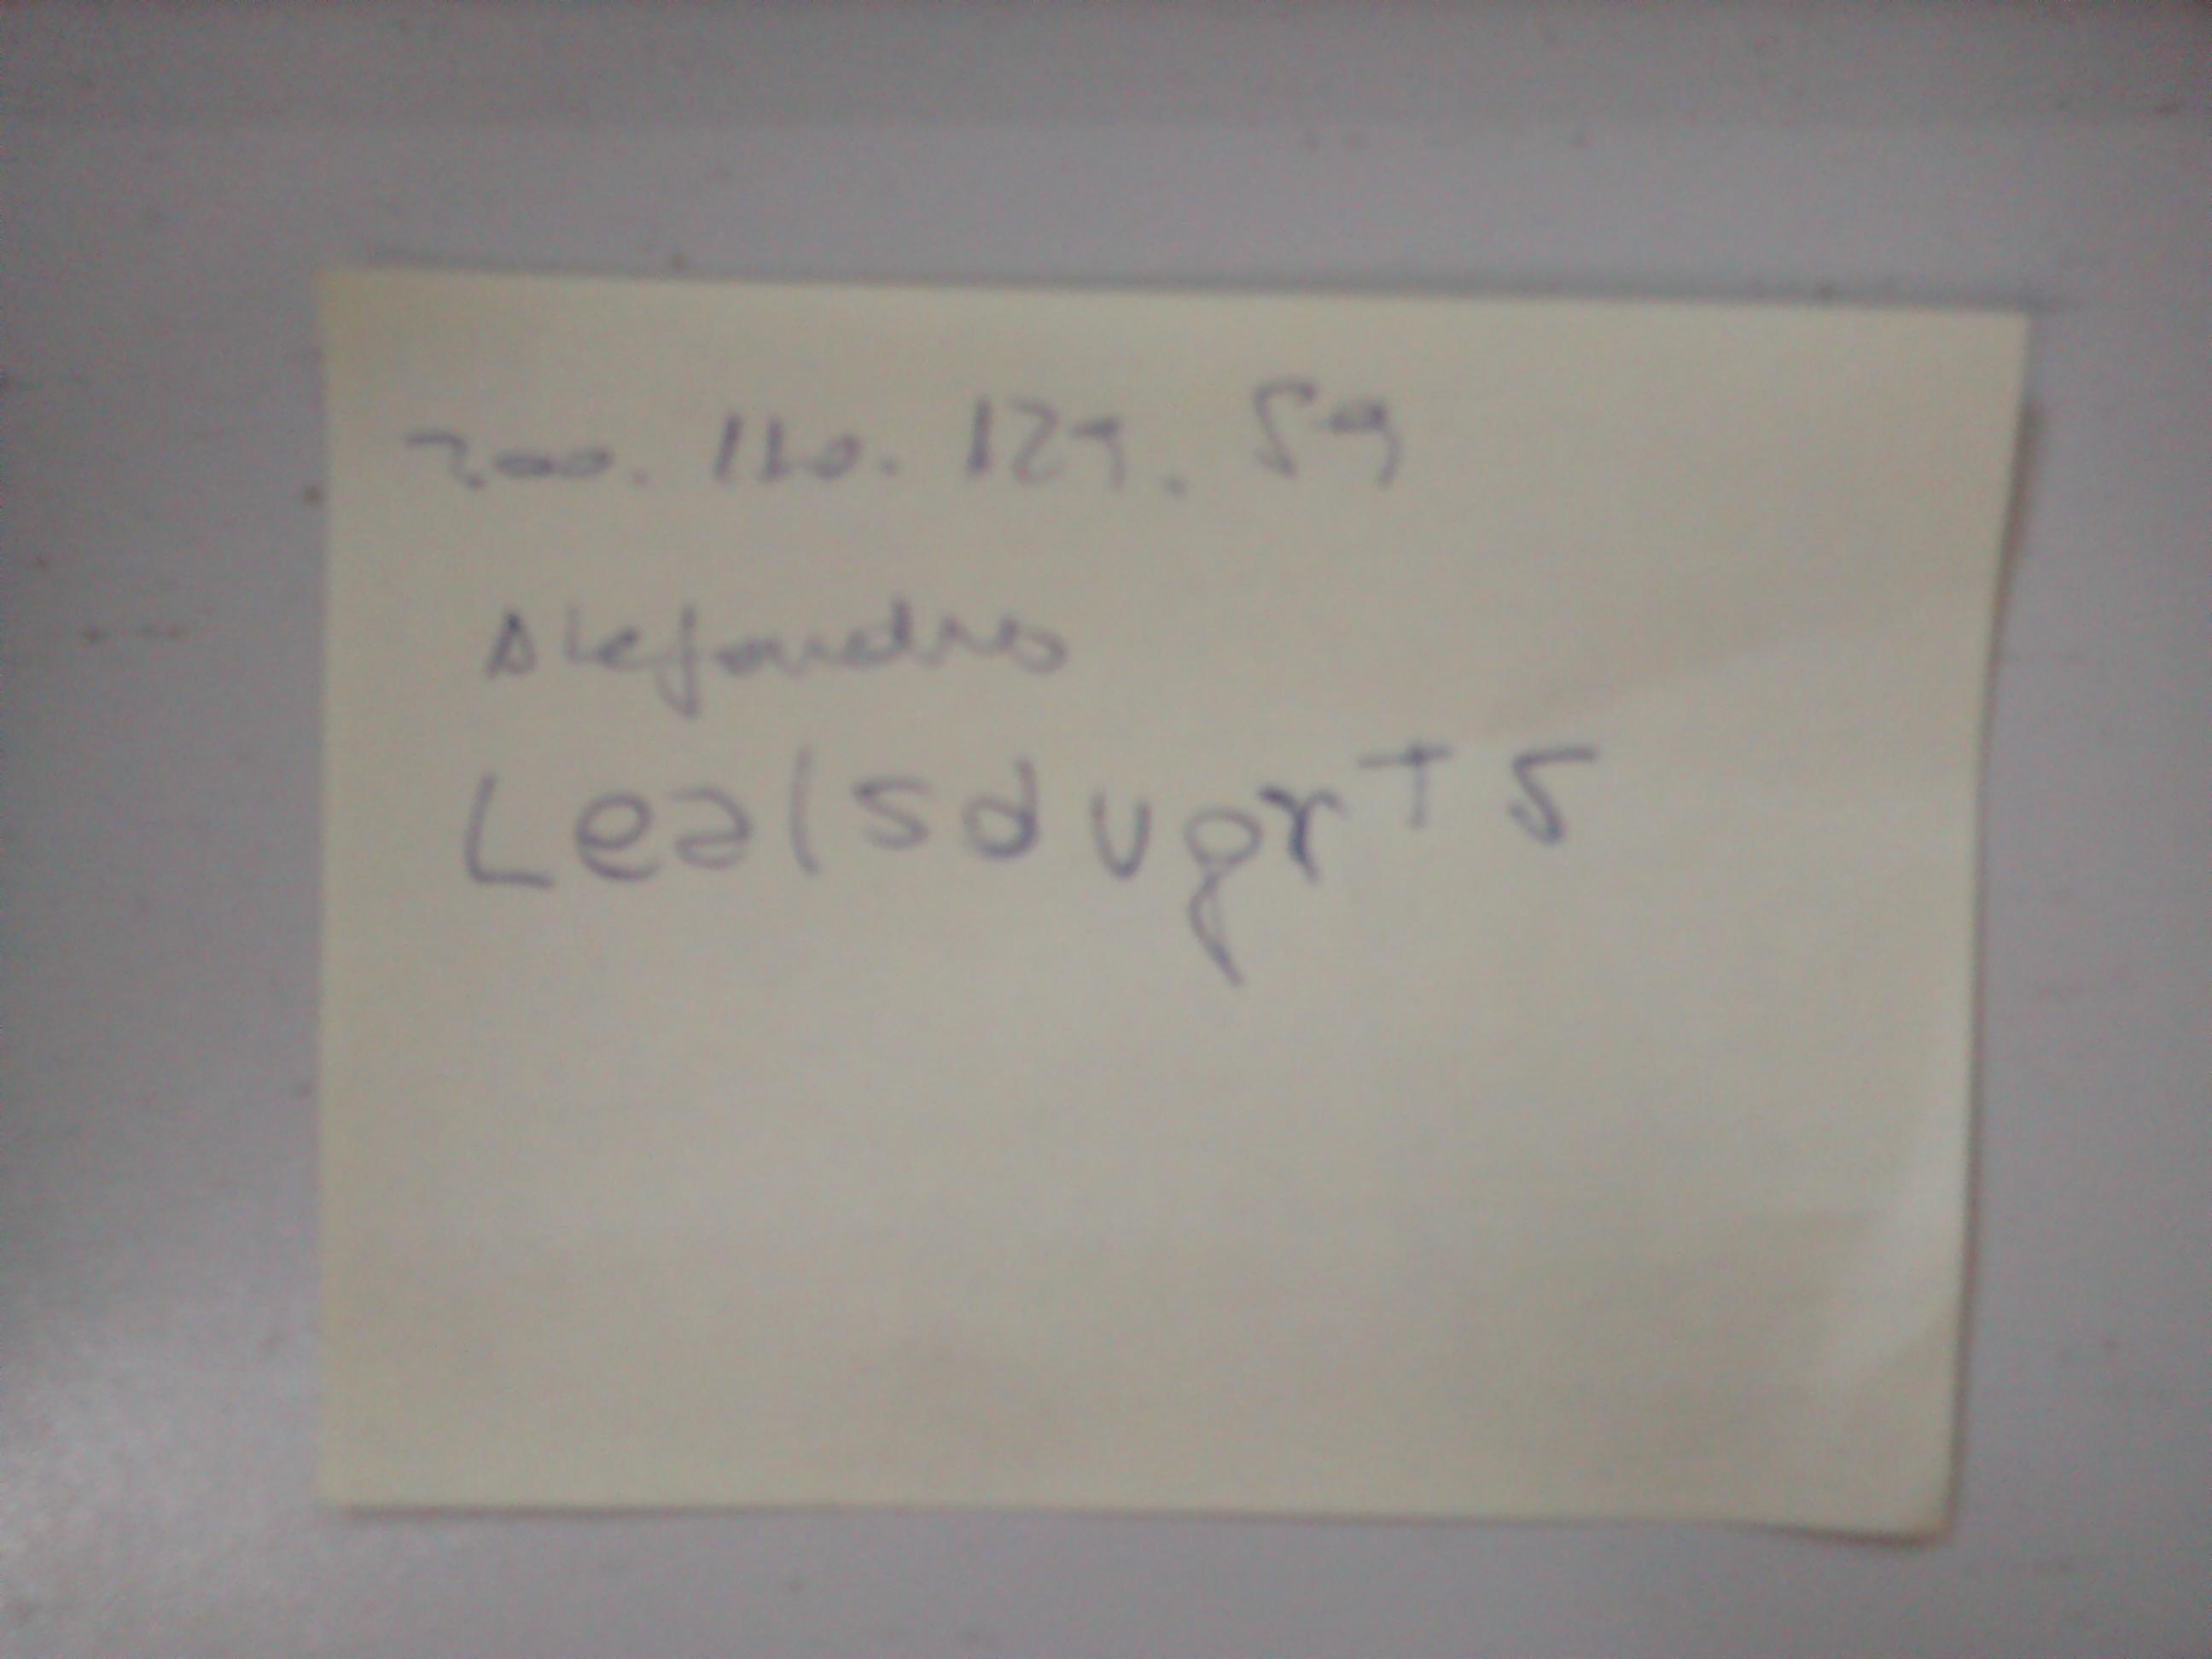 200.110.129.59
Alejandro
Lealsdvgr+5